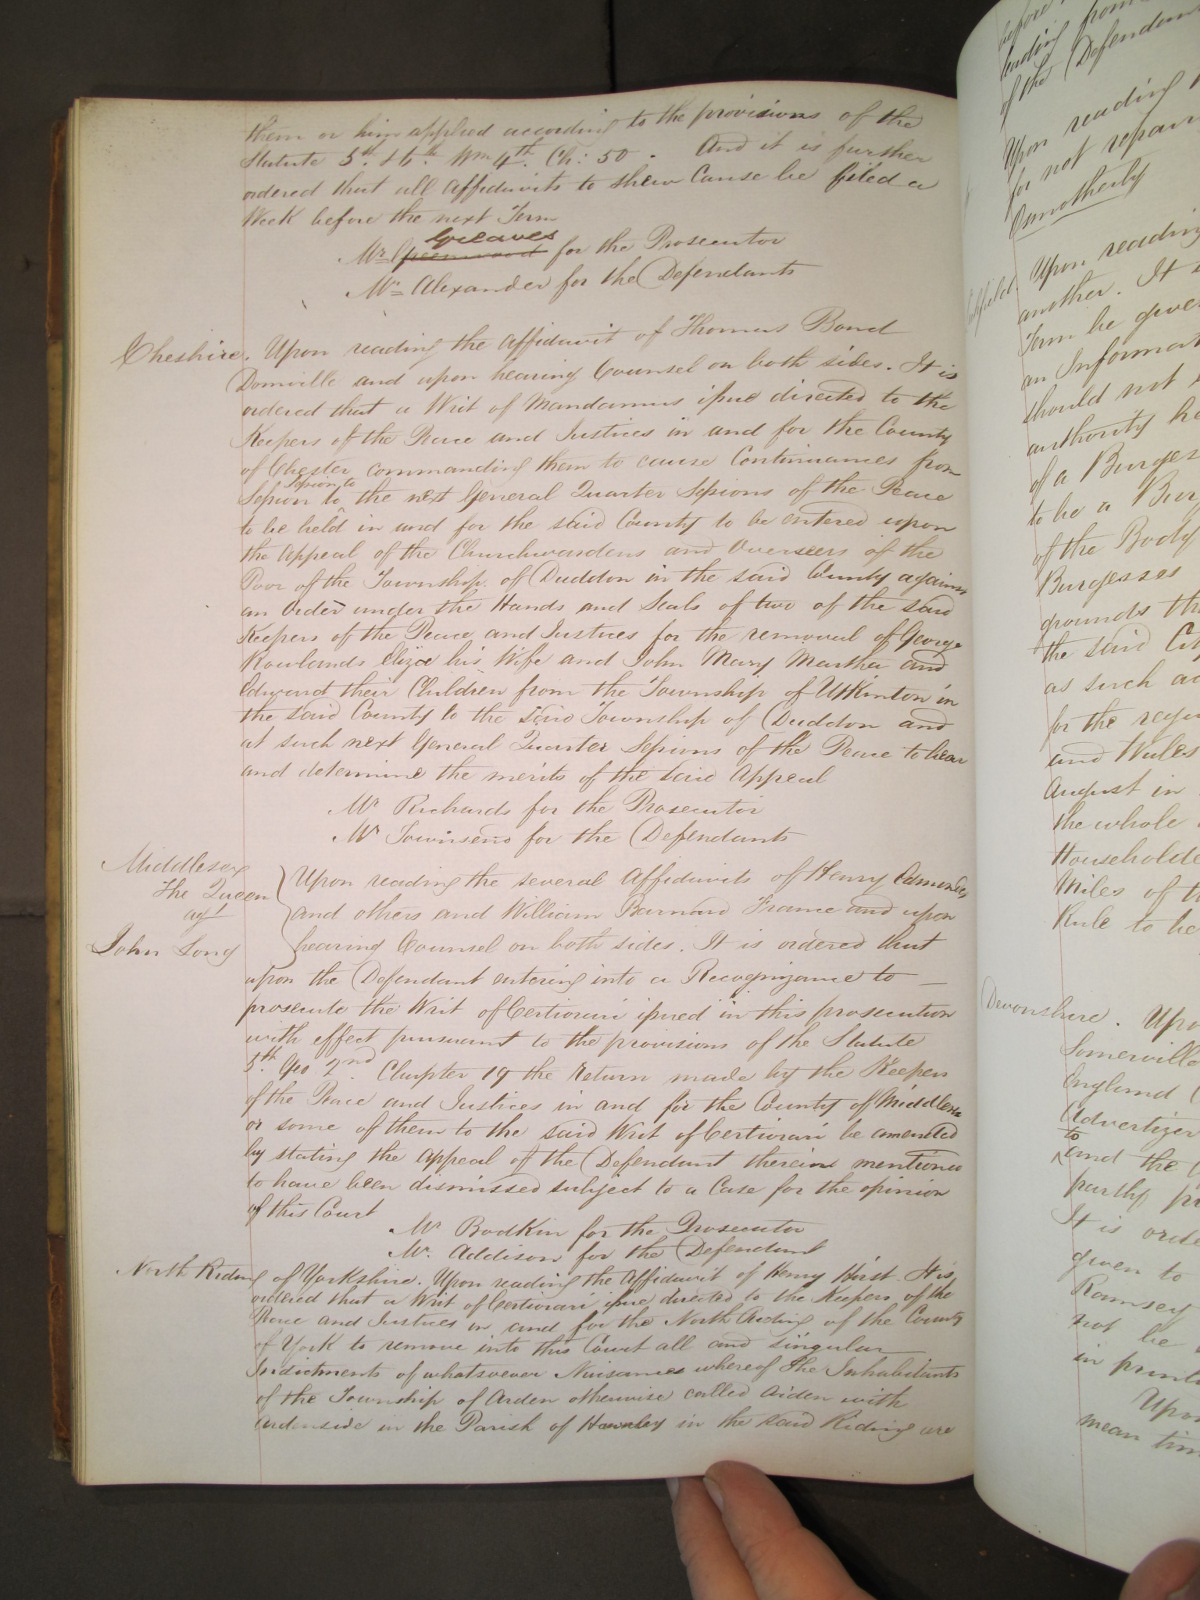 them or him applied according to the provisions of the
Statute 5th & 6th Wm 4th Ch: 50. And it is further
ordered that all Affidavits to shew Cause be filed a
Week before the next Term
Greaves
Mr Greenwood for the Prosecutor
Mr Alexander for the Defendants
Cheshire. Upon reading the Affidavit of Thomas Bond
Domville and upon hearing Counsel on both sides. It is
ordered that a Writ of Mandamus issue directed to the
Keepers of the Peace and Justices in and for the County
of Chester commanding them to cause Continuances from
Session to
Session to the next General Quarter Sessions of the Peace
to be held in and for the said County to be entered upon
the Appeal of the Churchwardens and Overseers of the
Poor of the Township of Duddon in the said County against
an Order under the Hands and Seals of two of the said
Keepers of the Peace and Justices for the removal of George
Rowlands Eliza his Wife and John Mary Martha and
Edward their Children from the Township of Utkinton in
the said County to the said Township of Duddon and
at such next General Quarter Sessions of the Peace to hear
and determine the merits of the said Appeal
Mr Richards for the Prosecutor
Mr Townsend for the Defendants
Middlesex
The Queen
agt
John Long
Upon reading the several Affidavits of Henry
and others and William Barnard France and upon
hearing Counsel on both sides. It is ordered that
upon the Defendant entering into a Recognizance to
prosecute the Writ of Certiorari issued in this prosecution
with effect pursuant to the provisions of the Statute
5th Geo 2nd Chapter 19 the Return made by the Keepers
of the Peace and Justices in and for the County of Middlesex
or some of them to the said Writ of Certiorari be amended
by stating the Appeal of the Defendant therein mentioned
to have been dismissed subject to a Case for the opinion
of this Court
Mr Bodkin for the Prosecutor
Mr. Addison for the Defendant
North Riding of Yorkshire. Upon reading the Affidavit of Henry Hirst. It is
ordered that a Writ of Certiorari issue directed to the Keepers of the
Peace and Justices in and for the North Riding of the County
of York to remove into this Court all and singular
Indictments of whatsoever Nuisances whereof the Inhabitants
of the Township of Arden otherwise called Arden with
Ardenside in the Parish of Hawnby in the said Riding are
of the Defendant
Upon reading
for not repair
Osmotherly
Upon reading
another. It
Term be give
an Informa
should not
authority
of a Burges
to be a Bur
of the Body
Burgesses
grounds
the said
as such
for the
and Wales
August in
the whole
Householde
Miles of
Rule to be
Devonshire. Upo
Somerville
England
Advertizer
to
and the
partly
It is orde
given to
Ramsey
not be
in print
Upon
mean tim